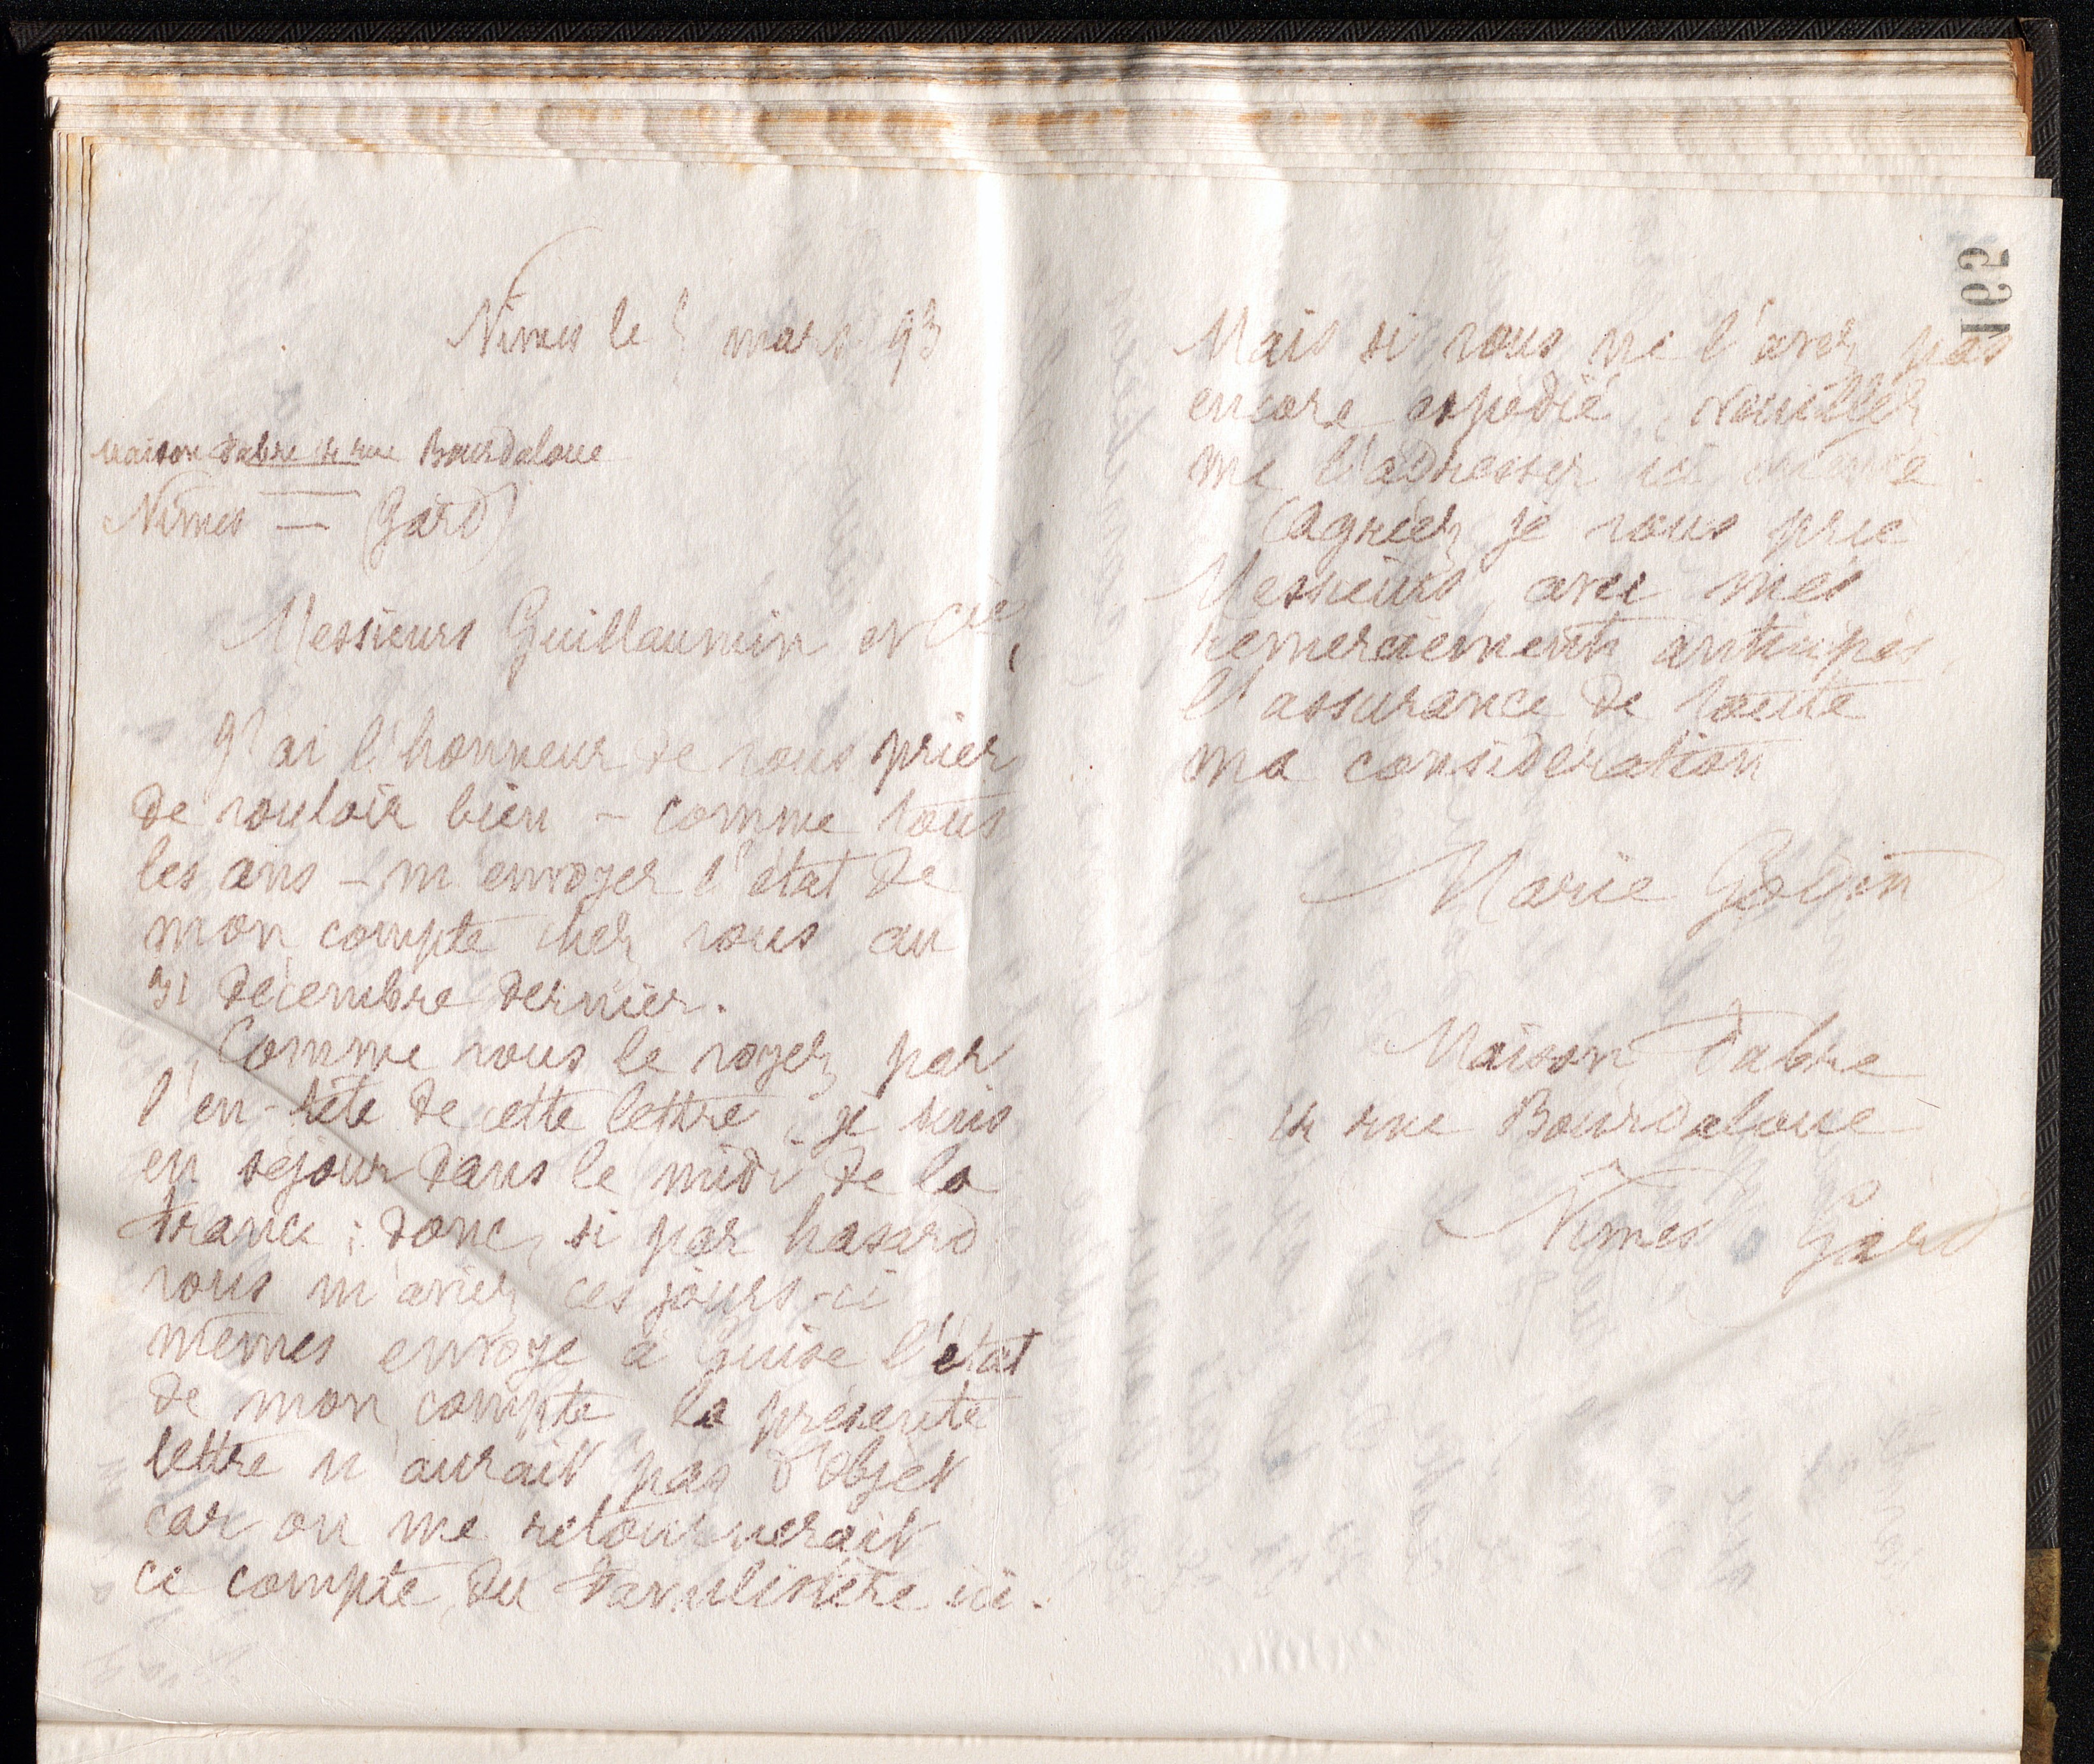 Nîmes le 5 mars 93
Maison Fabre 14 rue Bourdaloue
Nîmes — (Gard)
Messieurs Guillaumin et Cie,
J'ai l'honneur de vous prier
de vouloir bien – comme tous
les ans – m'envoyer l'état de
mon compte chez vous au
31 décembre dernier.
Comme vous le voyez par
l'en-tête de cette lettre, je suis
en séjour dans le midi de la
France ; donc, si par hasard
vous m'aviez ces jours-ci
mêmes envoyé à Guise l'état
de mon compte la présente
lettre n'aurait pas d'objet
car on me retournerait
ce compte, du Familistère ici.
591
Mais si vous ne l'avez pas
encore expédié, veuillez
me l'adresser ici même.
Agréez je vous prie
Messieurs, avec mes
remerciements anticipés,
l'assurance de toute
ma considération
Marie Godin
Maison Fabre
14 rue Bourdaloue
Nîmes Gard